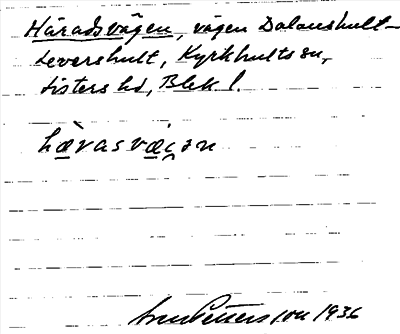 Häradsvägen, vägen Dalanshult-
Levershult, Kyrkhults sn,
Listers hd, Blek l.
hæ̀rasvæi̯ən
Pettersson 1936